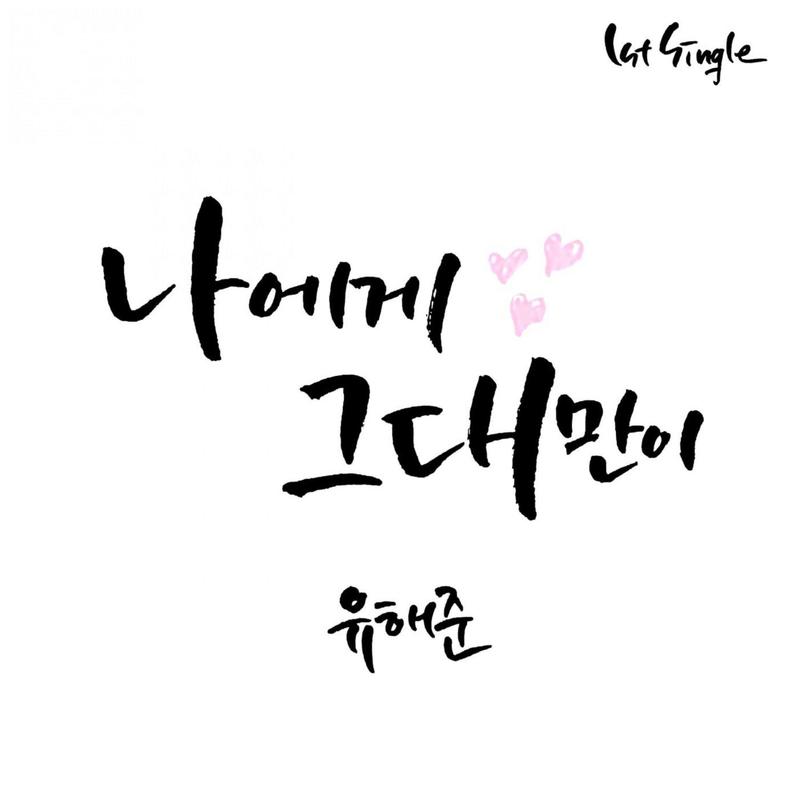 1st Single
나에게
그대만이
유해준